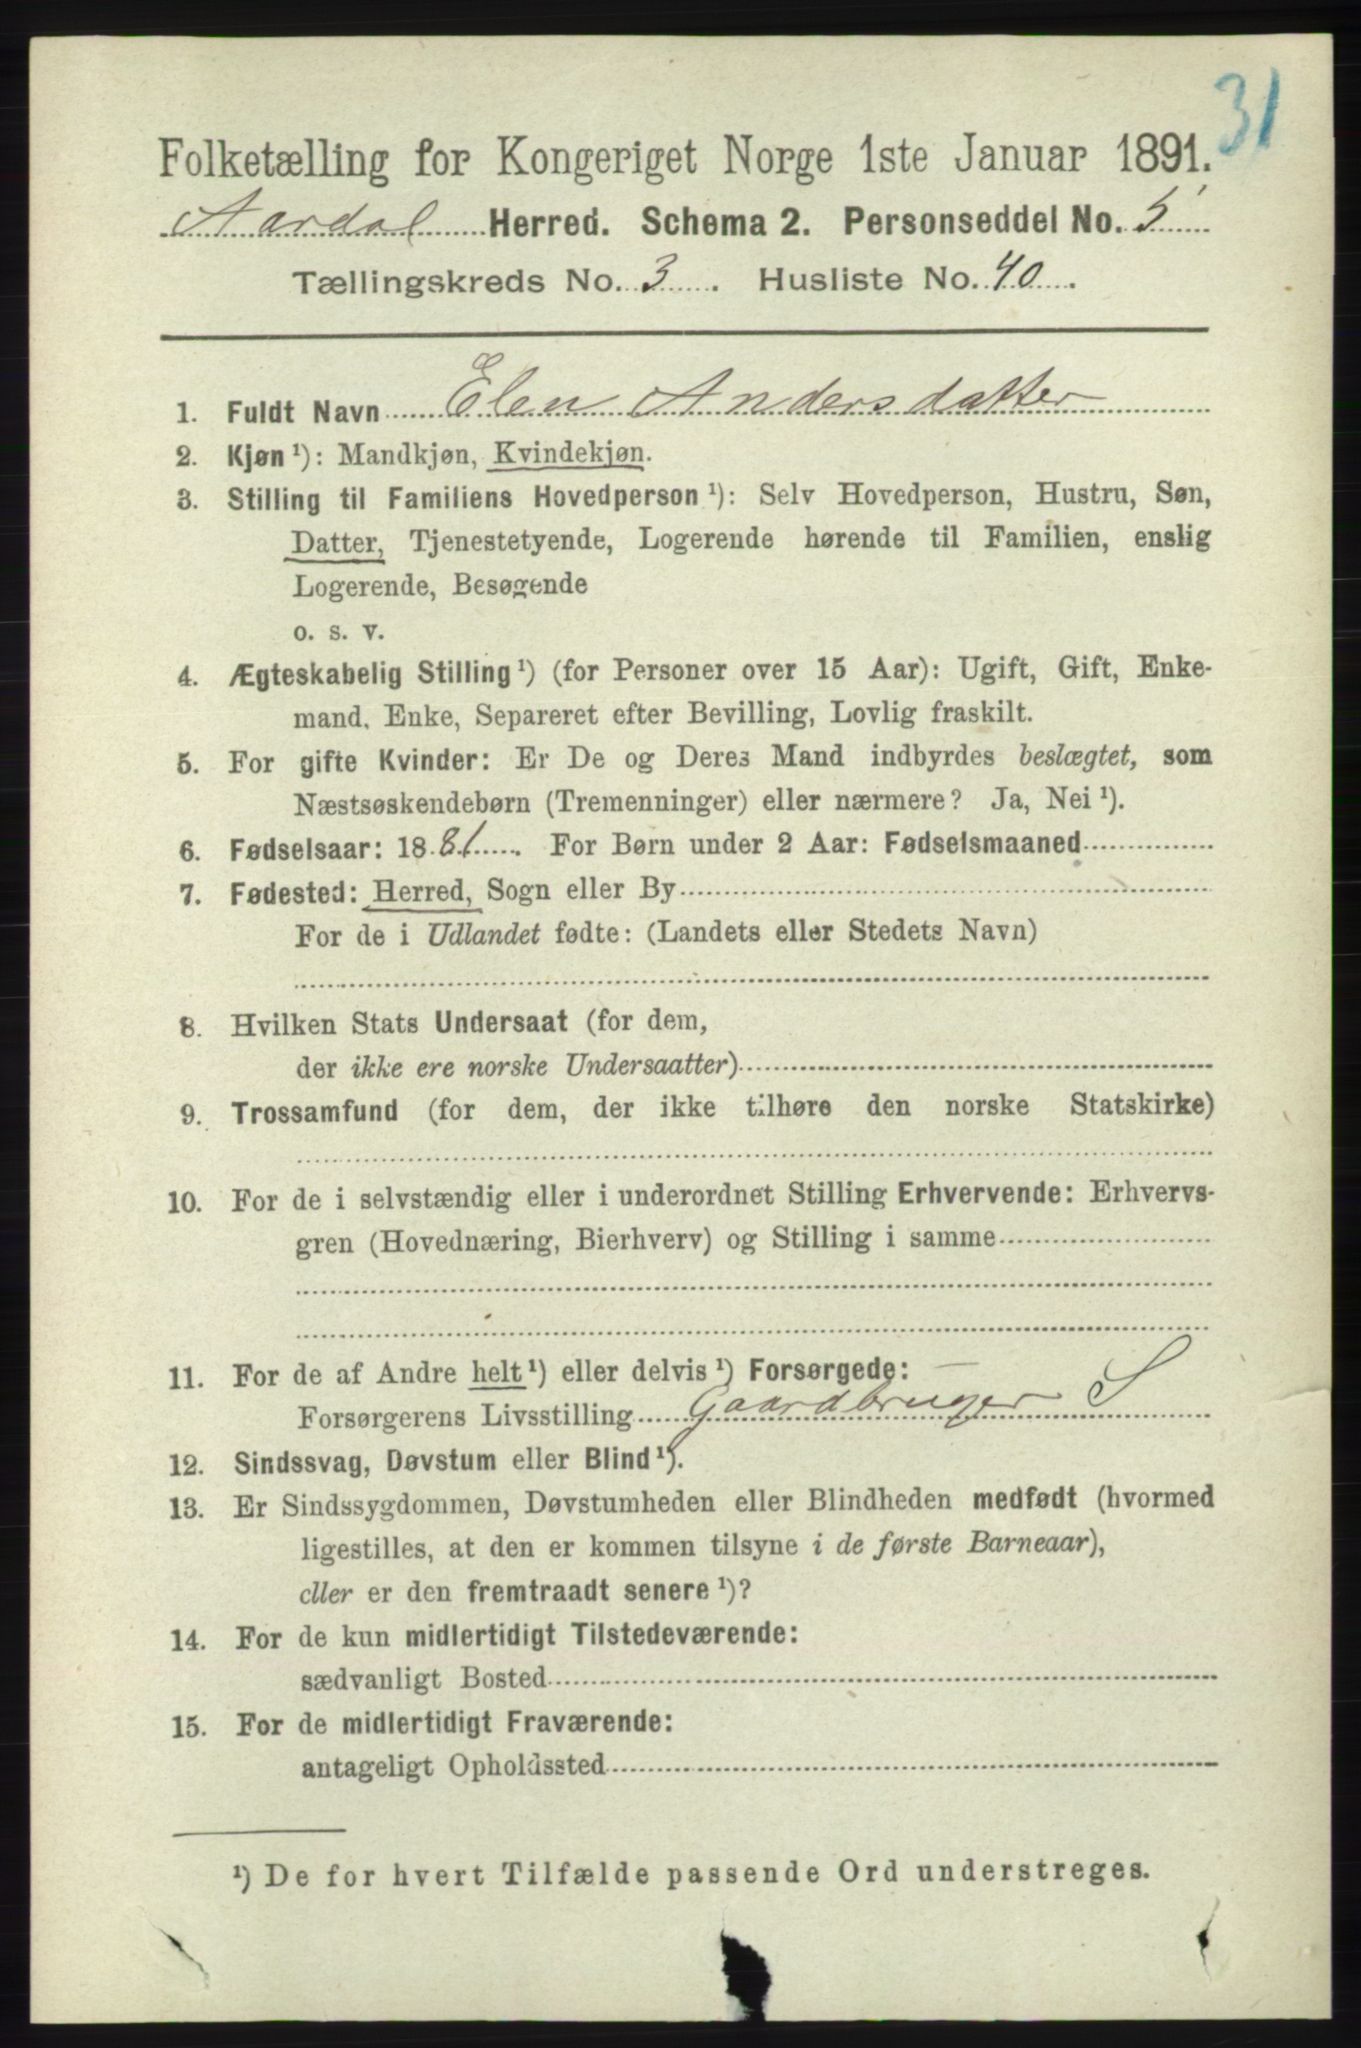 31
Folketælling for Kongeriget Norge 1ste Januar 1891.
Aardal Herred. Schema 2. Personseddel No. 5
Tællingskreds No. 3. Husliste No. 40.
1. Fuldt Navn Elen Andersdatter
2. Kjøn ¹): Mandkjøn, Kvindekjøn.
3. Stilling til Familiens Hovedperson ¹): Selv Hovedperson, Hustru, Søn,
Datter, Tjenestetyende, Logerende hørende til Familien, enslig
Logerende, Besøgende
o. s. v.
4. Ægteskabelig Stilling ¹) (for Personer over 15 Aar): Ugift, Gift, Enke-
mand, Enke, Separeret efter Bevilling, Lovlig fraskilt.
5. For gifte Kvinder: Er De og Deres Mand indbyrdes beslægtet, som
Næstsøskendebørn (Tremenninger) eller nærmere? Ja, Nei ¹).
6. Fødselsaar: 1881. For Børn under 2 Aar: Fødselsmaaned
7. Fødested: Herred, Sogn eller By
For de i Udlandet fødte: (Landets eller Stedets Navn)
8. Hvilken Stats Undersaat (for dem,
der ikke ere norske Undersaatter)
9. Trossamfund (for dem, der ikke tilhøre den norske Statskirke)
10. For de i selvstændig eller i underordnet Stilling Erhvervende: Erhvervs-
gren (Hovednæring, Bierhverv) og Stilling i samme
11. For de af Andre helt ¹) eller delvis ¹) Forsørgede: —
Forsørgerens Livsstilling Gaardbruger S
12. Sindssvag, Døvstum eller Blind ¹).
13. Er Sindssygdommen, Døvstumheden eller Blindheden medfødt (hvormed
ligestilles, at den er kommen tilsyne i de første Barneaar),
eller er den fremtraadt senere ¹)?
14. For de kun midlertidigt Tilstedeværende:
sædvanligt Bosted
15. For de midlertidigt Fraværende:
antageligt Opholdssted
¹) De for hvert Tilfælde passende Ord understreges.